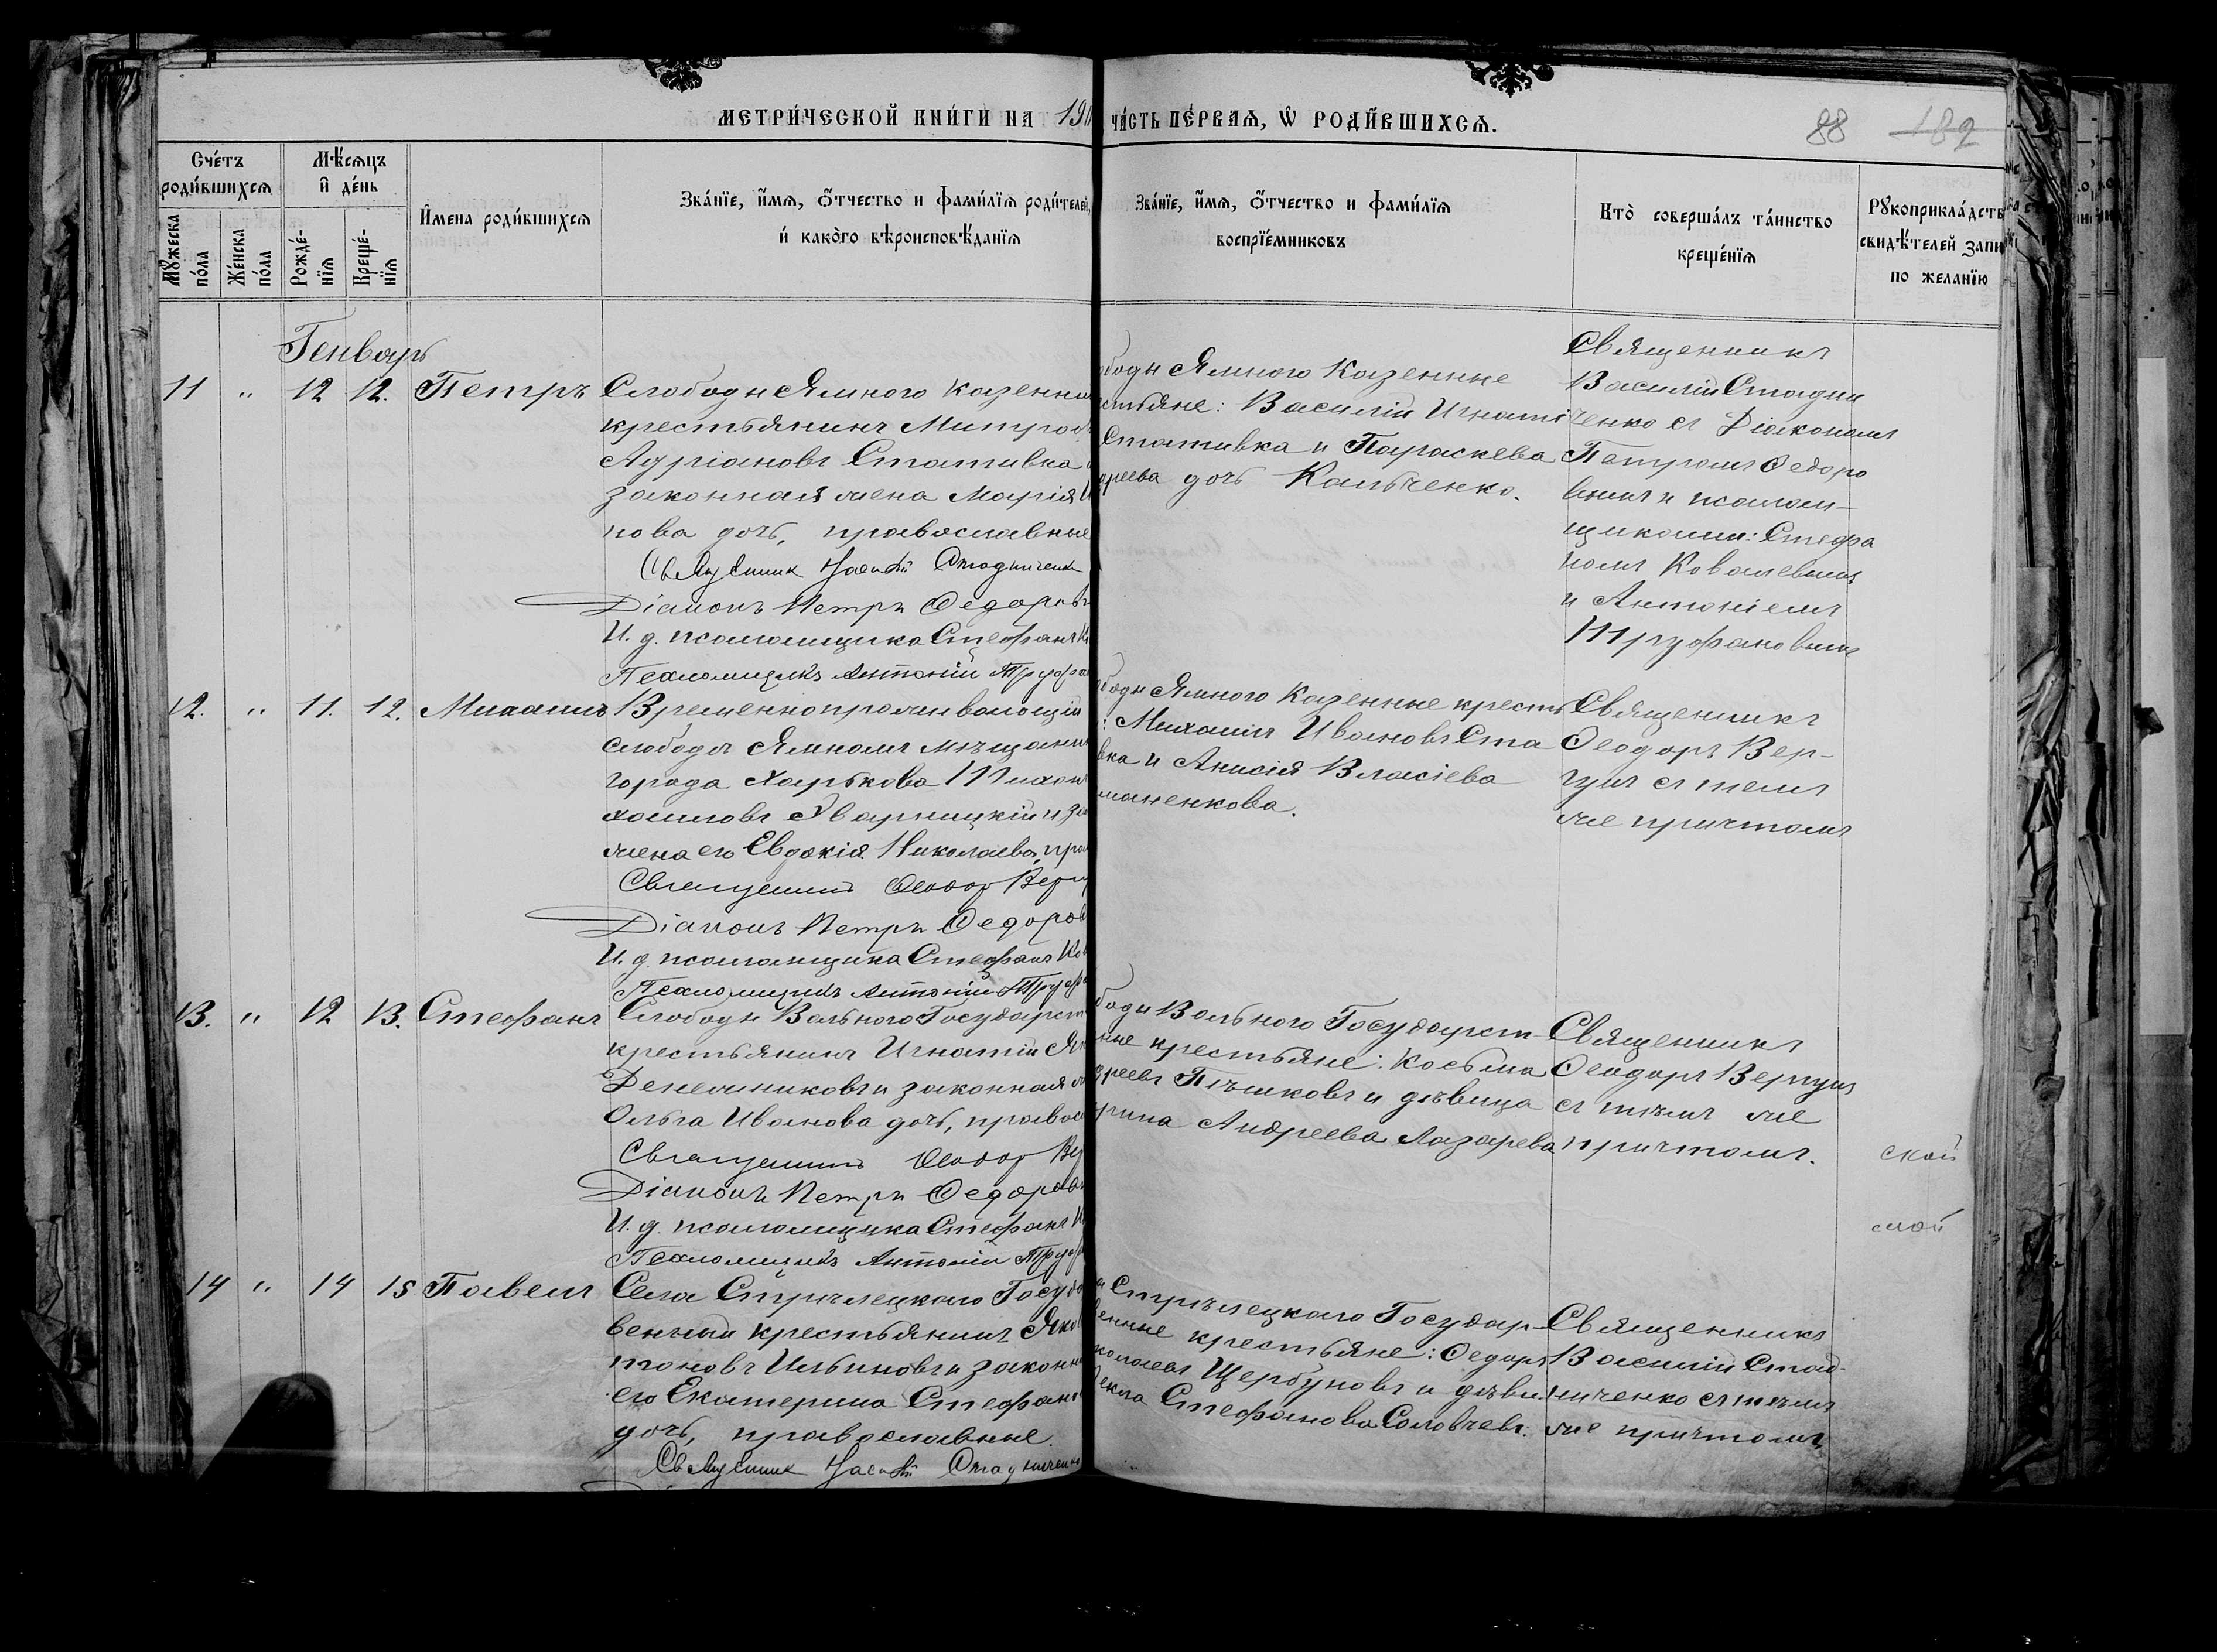 МЕТРИ́ЧЕСКОЙ КНИ́ГИ НА 19
ЧА́СТЬ ПЕ́РВАЯ, Ѡ РОДИ́ВШИХСЯ.
88 182
Сче́тъ роди́вшихся
Мѣ́сяцъ и де́нь
И́мена роди́вшихся
Зва́нїе, и́мя, о́тчество и фами́лїя роди́телей,
и како́го вѣроисповѣ́данїя
Зва́нїе, и́мя, о́тчество и фами́лїя
воспрїе́мниковъ
Кто̀ соверша́лъ та́инство
креще́нїя
Рꙋкоприкла́дств
свидѣ́телей запи
по желанїю
Мꙋ́жеска по́ла
Же́нска по́ла
Рожде́-
нїя
Креще́-
нїя
Генварь
11 " 12 12. Петръ
Слободы Ямного казенны
крестьянинъ Митроф
Адріановъ Стативка
законная жена Марія
пова дочь, православные
Священник Василій Стадниченк
Діаконъ Петръ Федоров
И. д. псаломщика Стефанъ
Псаломщикъ Антоній Труфа
ободы Ямного казенные
стьяне: Василій Игнаті
Стативка и Параскева
дреева дочь Кальченко.
Священникъ
Василій Стадни
ченко съ Діакономъ
Петромъ Федоро
вымъ и псалом-
щиками: Стефа
номъ Ковалевымъ
и Антоніемъ
Труфановымъ
12. " 11. 12. Михаилъ
Временно проживающій
слободы Ямномъ мѣщани
города Харькова Тихон
хаиловъ Хварницкій и за
жена его Евдокія Николаева, пра
Священникъ Ѳеодор Верг
Діаконъ Петръ Федоров
И. д. псаломщика Стефанъ Ко
Псаломщикъ Антоній Труфа
ободы Ямного казенные кресть
: Михаилъ Ивановъ Ста
вка и Анисія Власіева
маненкова.
Священникъ
Ѳеодоръ Вер-
гунъ съ темъ
же причтомъ
13. " 12 13. Стефанъ
Слободы Вольного Государст
крестьянинъ Игнатій Як
Денежниковъ и законная ж
Ольга Иванова дочь, правос
Священникъ Ѳеодор Ве
Діаконъ Петръ Федоров
И. д. псаломщика Стефанъ
Псаломщикъ Антоній Труф
боды Вольного Государст-
нные крестьяне: Косьма
дреевъ Пѣшковъ и дѣвица
рина Андреева Лазарева
Священникъ
Ѳеодоръ Вергунъ
съ тѣмъ же
причтомъ.
ской
мой
14 " 14 15 Павелъ
Села Стрѣлецкаго Госуда
венный крестьянинъ Яко
тоновъ Ильиновъ и законн
его Екатерина Стефано
дочь, православные.
Священник Василій Стадничен
Стрѣлецкаго Государ-
венные крестьяне: Федоръ
колаевъ Щербуновъ и дѣви
екла Стефанова Соловьева.
Священникъ
Василій Стад-
ниченко съ тѣмъ
же причтомъ